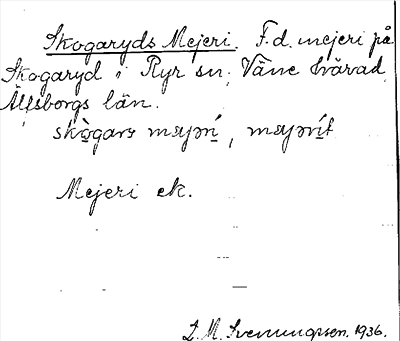 Skogaryds Mejeri. F.d. mejeri på
Skogaryd i Ryr sn, Väne härad,
Älfsborgs län.
skògarᵴ mæjərí, mæjərít
Mejeri ek.
L. M. Svenungsson. 1936.